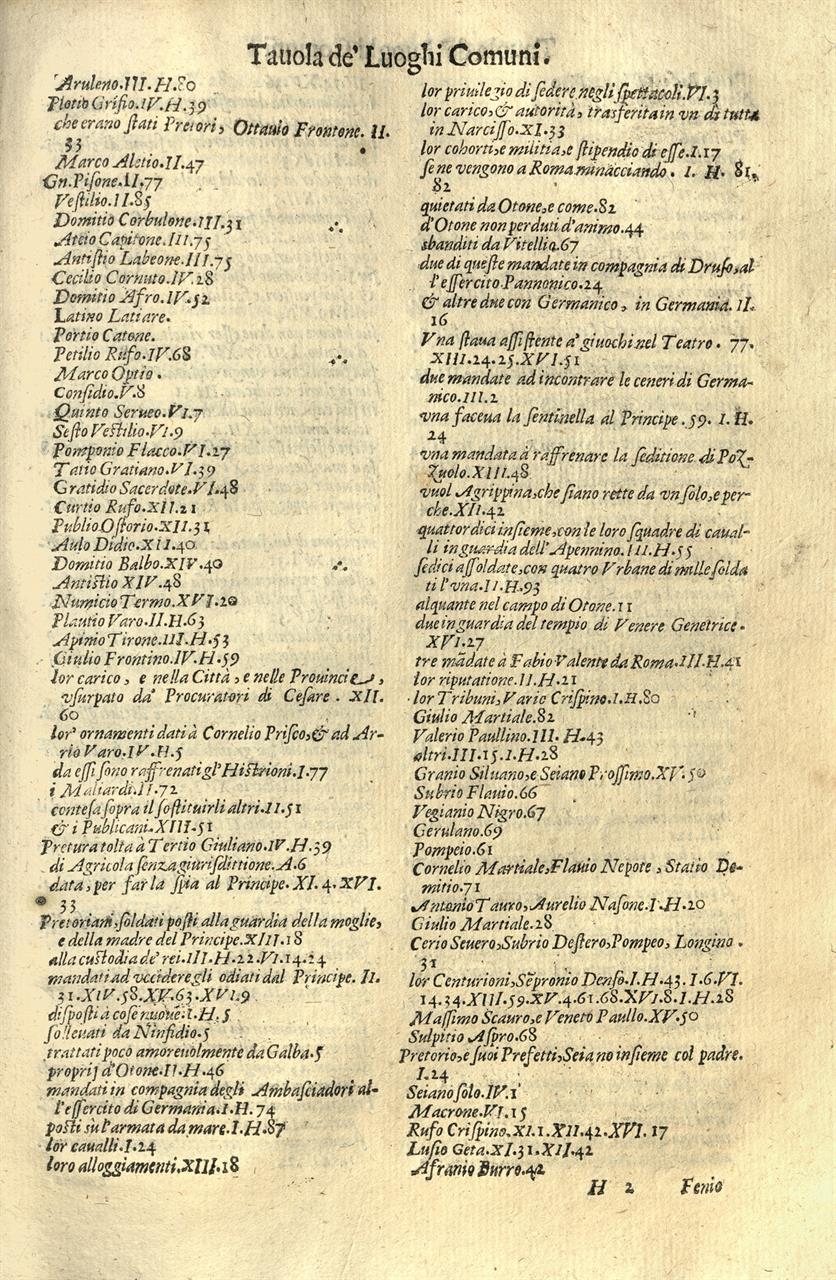 Tauola de' Luoghi Comuni.
Aruleno.III.H.80
Plotio Grifio.IV.H.39
che erano stati Pretori, Ottauio Frontone. II.
33
Marco Aletio.II.47
Gn.Pisone.II.77
Vestilio.II.85
Domitio Corbulone.III.31
Ateio Capitone.III.75
Antistio Labeone.III.75
Cecilio Cornuto.IV.28
Domitio Afro.IV.52
Latino Latiare.
Portio Catone.
Petilio Rufo.IV.68
Marco Optio.
Considio.V.8
Quinto Serueo.VI.7
Sesto Vestilio.VI.9
Pomponio Flacco.VI.27
Tatio Gratiano.VI.39
Gratidio Sacerdote.VI.48
Curtio Rufo.XII.21
Publio Ostorio.XII.31
Aulo Didio.XII.40
Domitio Balbo.XIV.40
Antistio XIV.48
Numicio Termo.XVI.20
Plautio Varo.II.H.63
Apinio Tirone.III.H.53
Giulio Frontino.IV.H.59
lor carico, e nella Città, e nelle Prouincie,
vsurpato da' Procuratori di Cesare. XII.
60
lor' ornamenti dati à Cornelio Prisco,& ad Ar-
rio Varo.IV.H.5
da essi sono raffrenati gl'Histrioni.I.77
i Maliardi.II.72
contesa sopra il sostituirli altri.II.51
& i Publicani.XIII.51
Pretura tolta à Tertio Giuliano.IV.H.39
di Agricola senza giurisdittione.A.6
data, per far la spia al Principe. XI.4.XVI.
33
Pretoriani,soldati posti alla guardia della moglie,
e della madre del Principe.XIII.18
alla custodia de' rei.III.H.22.VI.14.24
mandati ad vccidere gli odiati dal Principe. II.
31.XIV.58.XV.63.XVI.9
disposti à cose nuoue.I.H.5
solleuati da Ninfidio.5
trattati poco amoreuolmente da Galba.5
proprij d'Otone.II.H.46
mandati in compagnia degli Ambasciadori al-
l'essercito di Germania.I.H.74
posti sù l'armata da mare.I.H.87
lor caualli.I.24
loro alloggiamenti.XIII.18
lor priuilegio di sedere negli spettacoli.VI.3
lor carico,& autorità, trasferita in vn dì tutta
in Narcisso.XI.33
lor cohorti,e militia,e stipendio di esse.I.17
se ne vengono a Roma minacciando. I. H. 81.
82
quietati da Otone,e come.82
d'Otone non perduti d'animo.44
sbanditi da Vitellio.67
due di queste mandate in compagnia di Druso,al
l'essercito Pannonico.24
& altre due con Germanico, in Germania. II.
16
Vna staua assistente a' giuochi nel Teatro. 77.
XIII.24.25.XVI.51
due mandate ad incontrare le ceneri di Germa-
nico.III.2
vna faceua la sentinella al Principe.59. I.H.
24
vna mandata à raffrenare la seditione di Poz-
zuolo.XIII.48
vuol Agrippina,che siano rette da vn solo,e per-
che.XII.42
quattordici insieme,con le loro squadre di caual-
li in guardia dell'Apennino.III.H.55
sedici assoldate,con quatro Vrbane di mille solda
ti l'vna.II.H.93
alquante nel campo di Otone.11
due in guardia del tempio di Venere Genetrice.
XVI.27
tre mãdate à Fabio Valente da Roma.III.H.41
lor riputatione.II.H.21
lor Tribuni,Vario Crispino.I.H.80
Giulio Martiale.82
Valerio Paullino.III. H.43
altri.III.15.I.H.28
Granio Siluano,e Seiano Prossimo.XV.50
Subrio Flauio.66
Vegianio Nigro.67
Gerulano.69
Pompeio.61
Cornelio Martiale,Flauio Nepote, Statio De-
mitio.71
Antonio Tauro, Aurelio Nasone.I.H.20
Giulio Martiale.28
Cerio Seuero,Subrio Destero,Pompeo, Longino.
31
lor Centurioni,Sẽpronio Denso.I.H.43.I.6.VI.
14.34.XIII.59.XV.4.61.68.XVI.8.I.H.28
Massimo Scauro,e Veneto Paullo.XV.50
Sulpitio Aspro.68
Pretorio,e suoi Prefetti,Seiano insieme col padre.
I.24
Seiano solo.IV.1
Macrone.VI.15
Rufo Crispino.XI.1.XII.42.XVI.17
Lusio Geta.XI.31.XII.42
Afranio Burro.42
H 2 Fenio